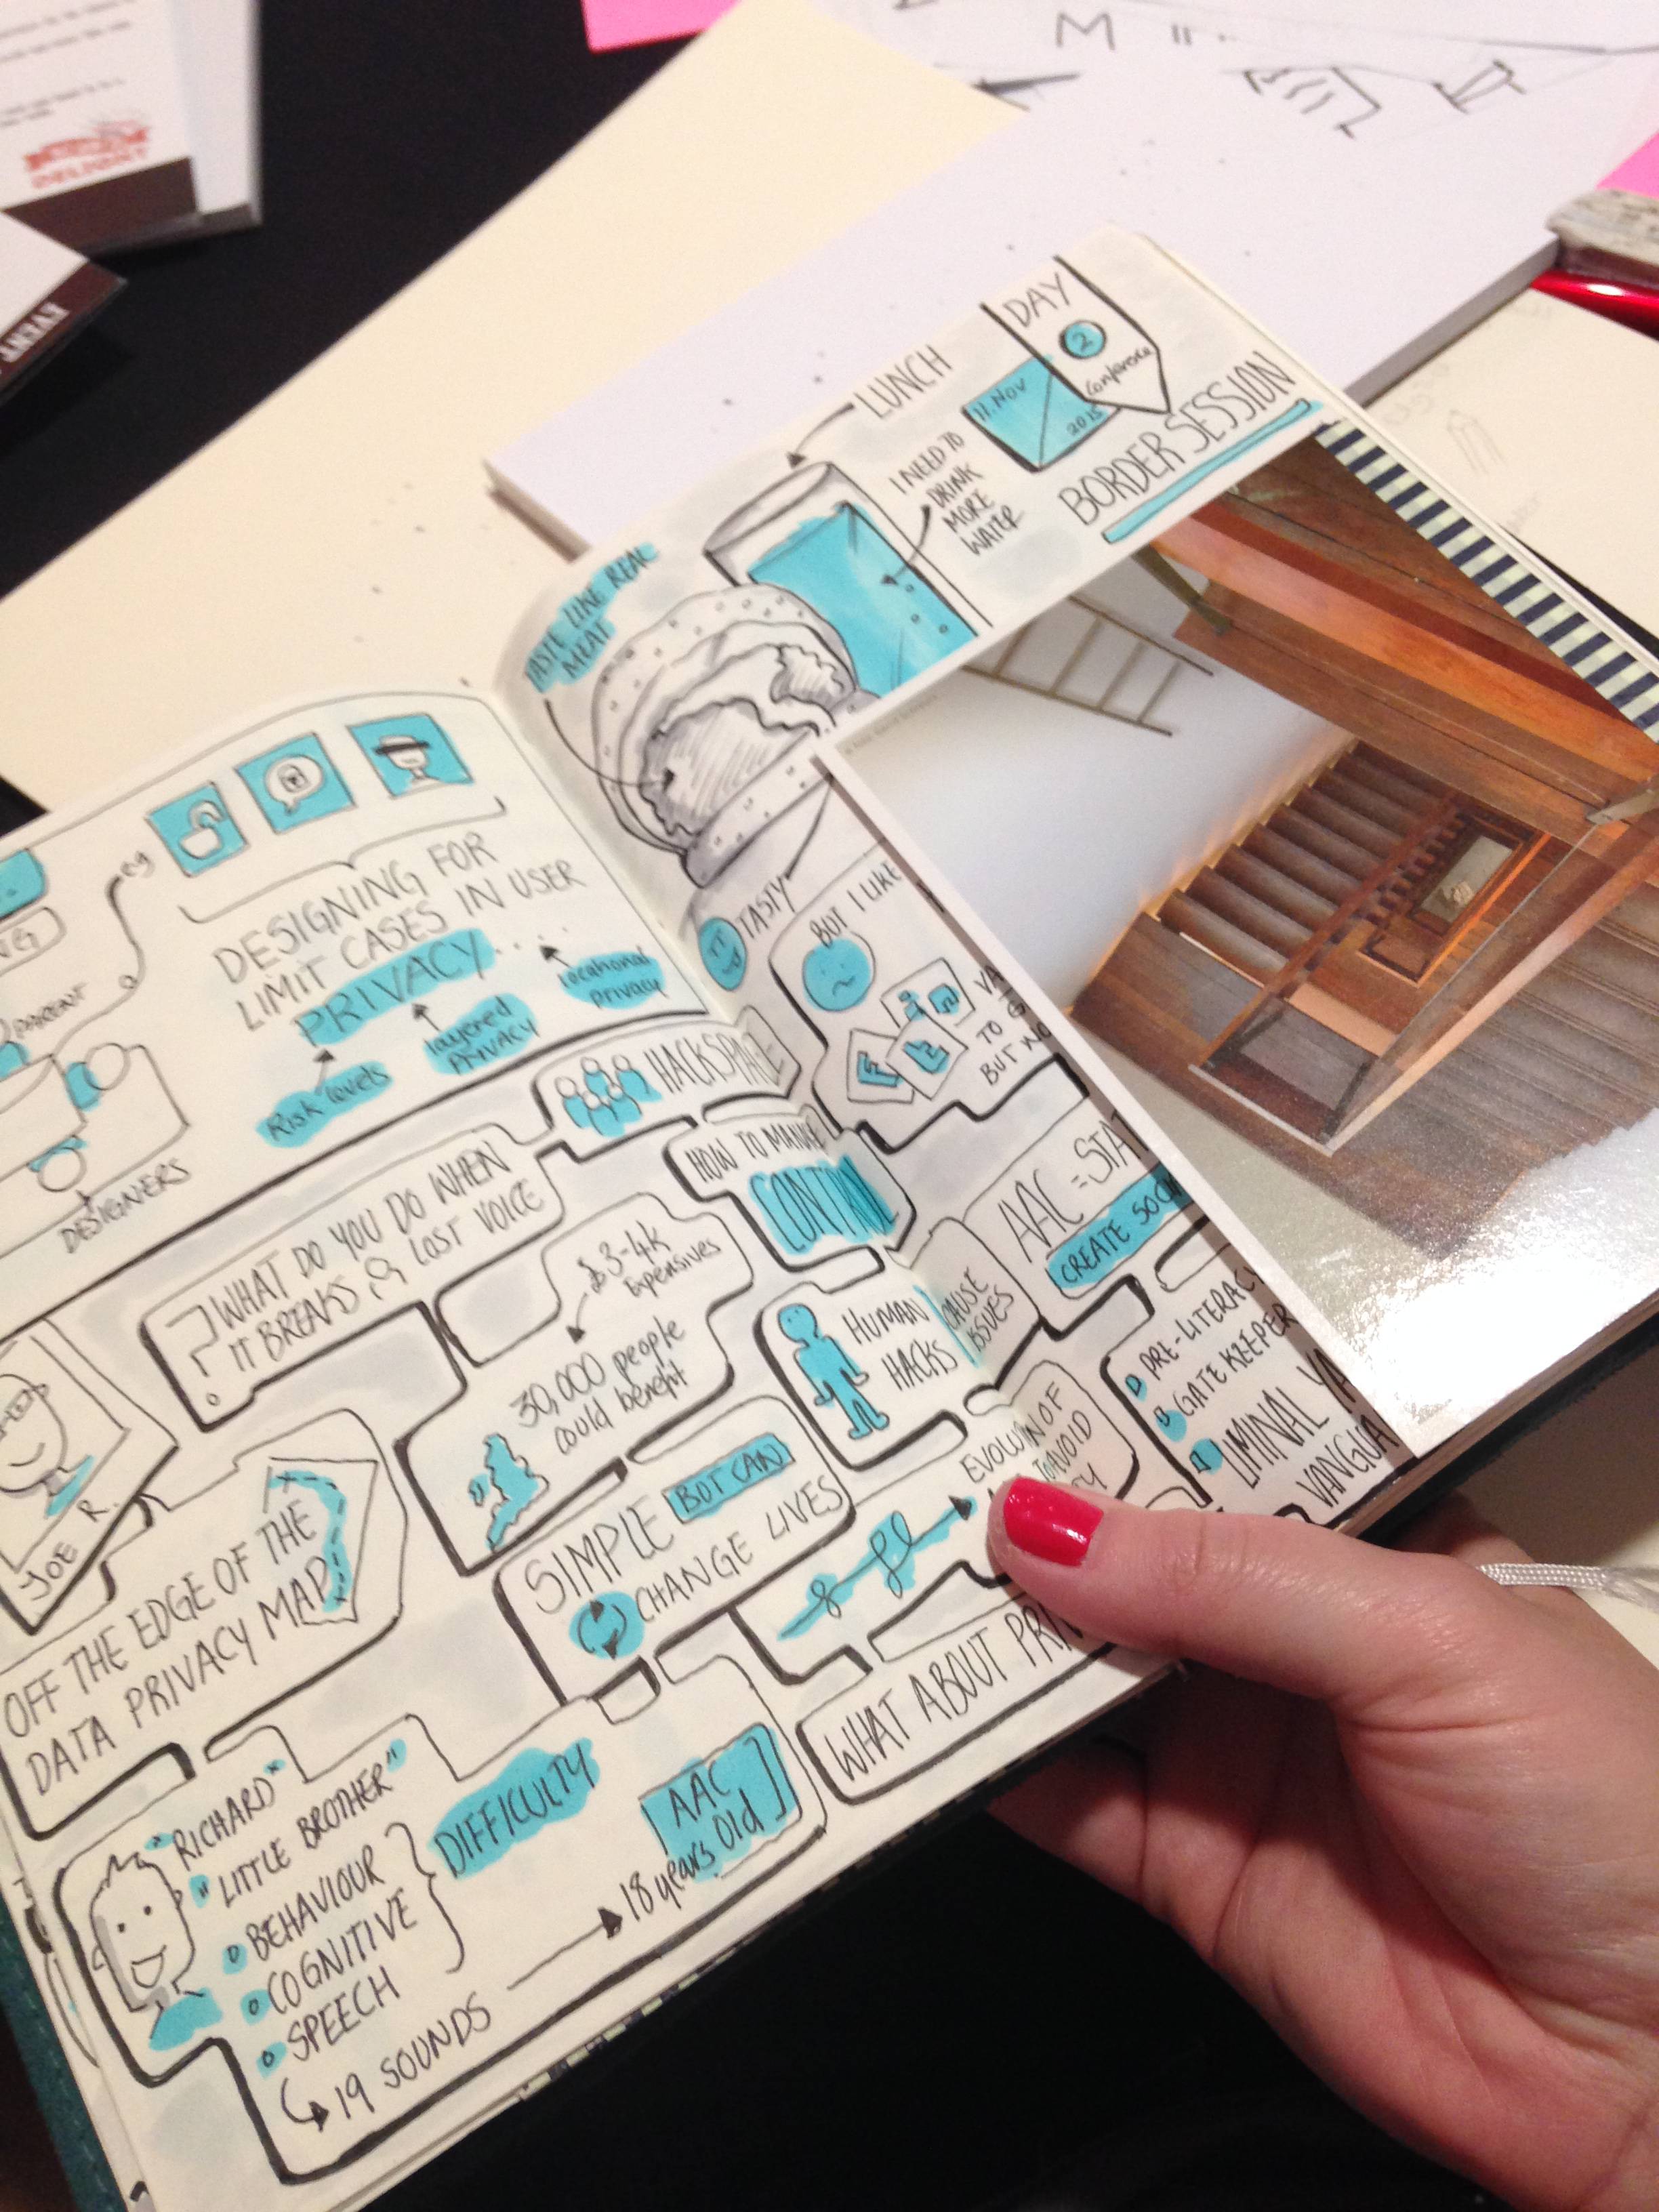 DELIGHT
EVENT
DAY
2
Conference
11. Nov
2015
BORDER SESSION
LUNCH
I NEED TO
DRINK
MORE
WATER
TASTE LIKE REAL
MEAT
TASTY
BUT I LIKE
TO
BUT NO
eg
PARENT
DESIGNERS
DESIGNING FOR
LIMIT CASES IN USER
PRIVACY.....
Risk levels
layered
PRIVACY
Locational
privacy
HACKSPACE
HOW TO MANAGE
CONTROL
? WHAT DO YOU DO WHEN
IT BREAKS & LOST VOICE
$ 3-4K
Expensives
30,000 people
could benefit
HUMAN
HACKS
CAUSE
ISSUES
AAC =
CREATE
PRE-LITERACY
GATE KEEPER
LIMINAL
EVOLUTION OF
TO AVOID
JOE R.
OFF THE EDGE OF THE
DATA PRIVACY MAP
SIMPLE BOT CAN
CHANGE LIVES
WHAT ABOUT
"RICHARD"
"LITTLE BROTHER"
BEHAVIOUR
COGNITIVE
SPEECH
DIFFICULTY
19 SOUNDS
18 years old
AAC